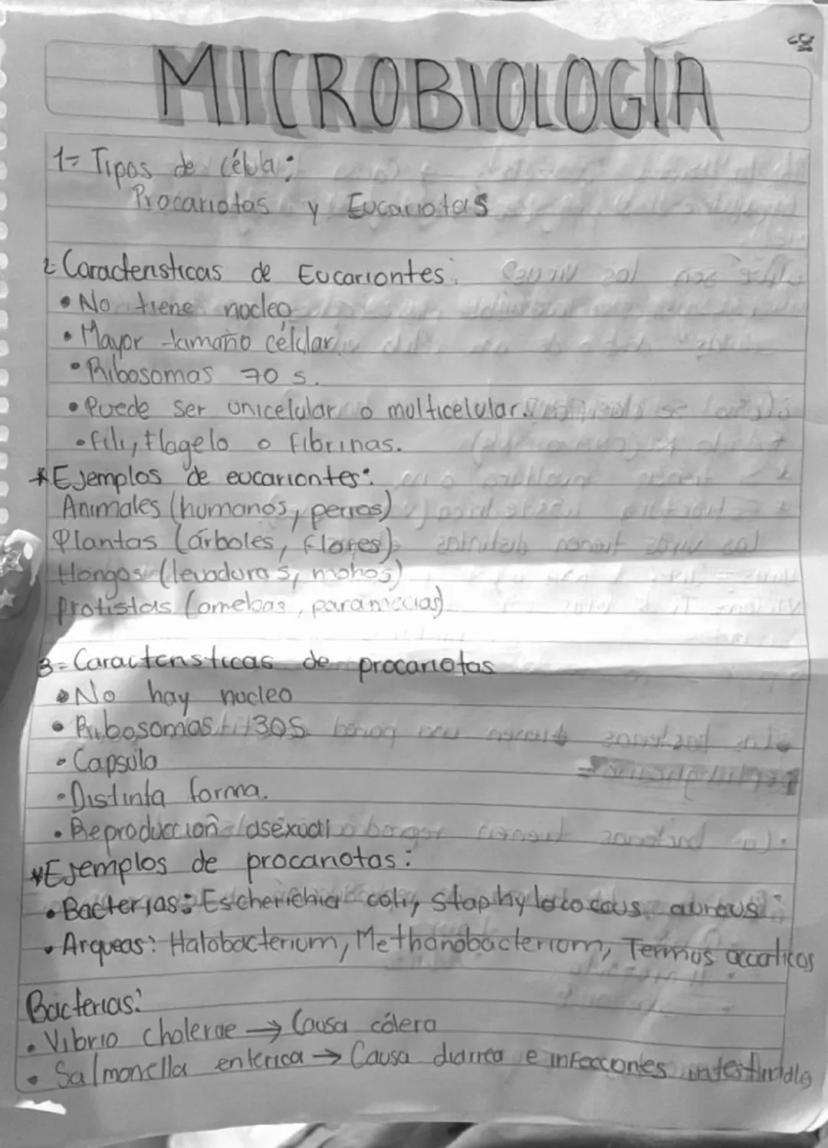 MICROBIOLOGIA
1= Tipos de célula:
Procariotas y Eucariotas
2 Caracteristicas de Eucariontes:
• No tiene nucleo
• Mayor tamaño célular.
• Ribosomas 70 s.
• Puede ser unicelular o multicelular.
• fili, flagelo o fibrinas.
*Ejemplos de eucariontes:
Animales (humanos, perros)
Plantas (árboles, flores)
Hongos (levaduras, mohos)
protistas (amebas, paramecias)
3= Caracteristicas de procariotas
• No hay nucleo
• Ribosomas 30S
• Capsula
• Distinta forma.
• Reproduccion asexual
*Ejemplos de procariotas:
• Bacterias: Escherichia coli, Staphylococcus aureus
• Arqueas: Halobacterium, Methanobacterium, Termus
Bacterias:
• Vibrio cholerae → Causa cólera
• Salmonella enterica → Causa diarrea e infecciones intestinales